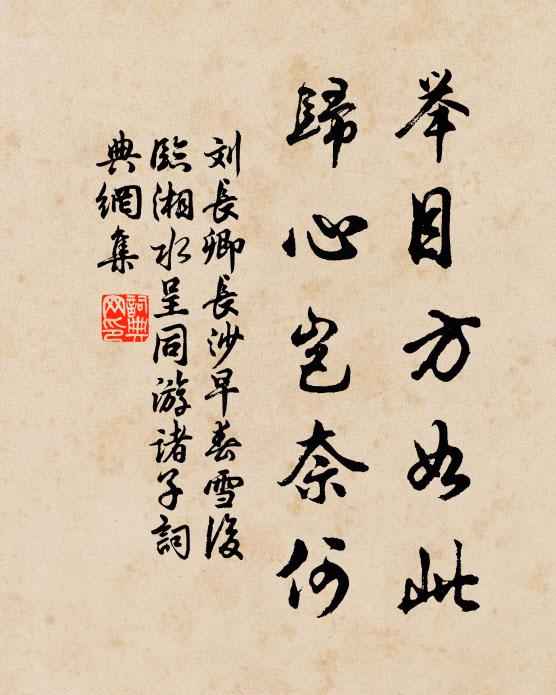 举目方如此
歸心岂奈何
刘長卿長沙早春雪後
臨湘水呈同游諸子詞
典網集
詞典网印